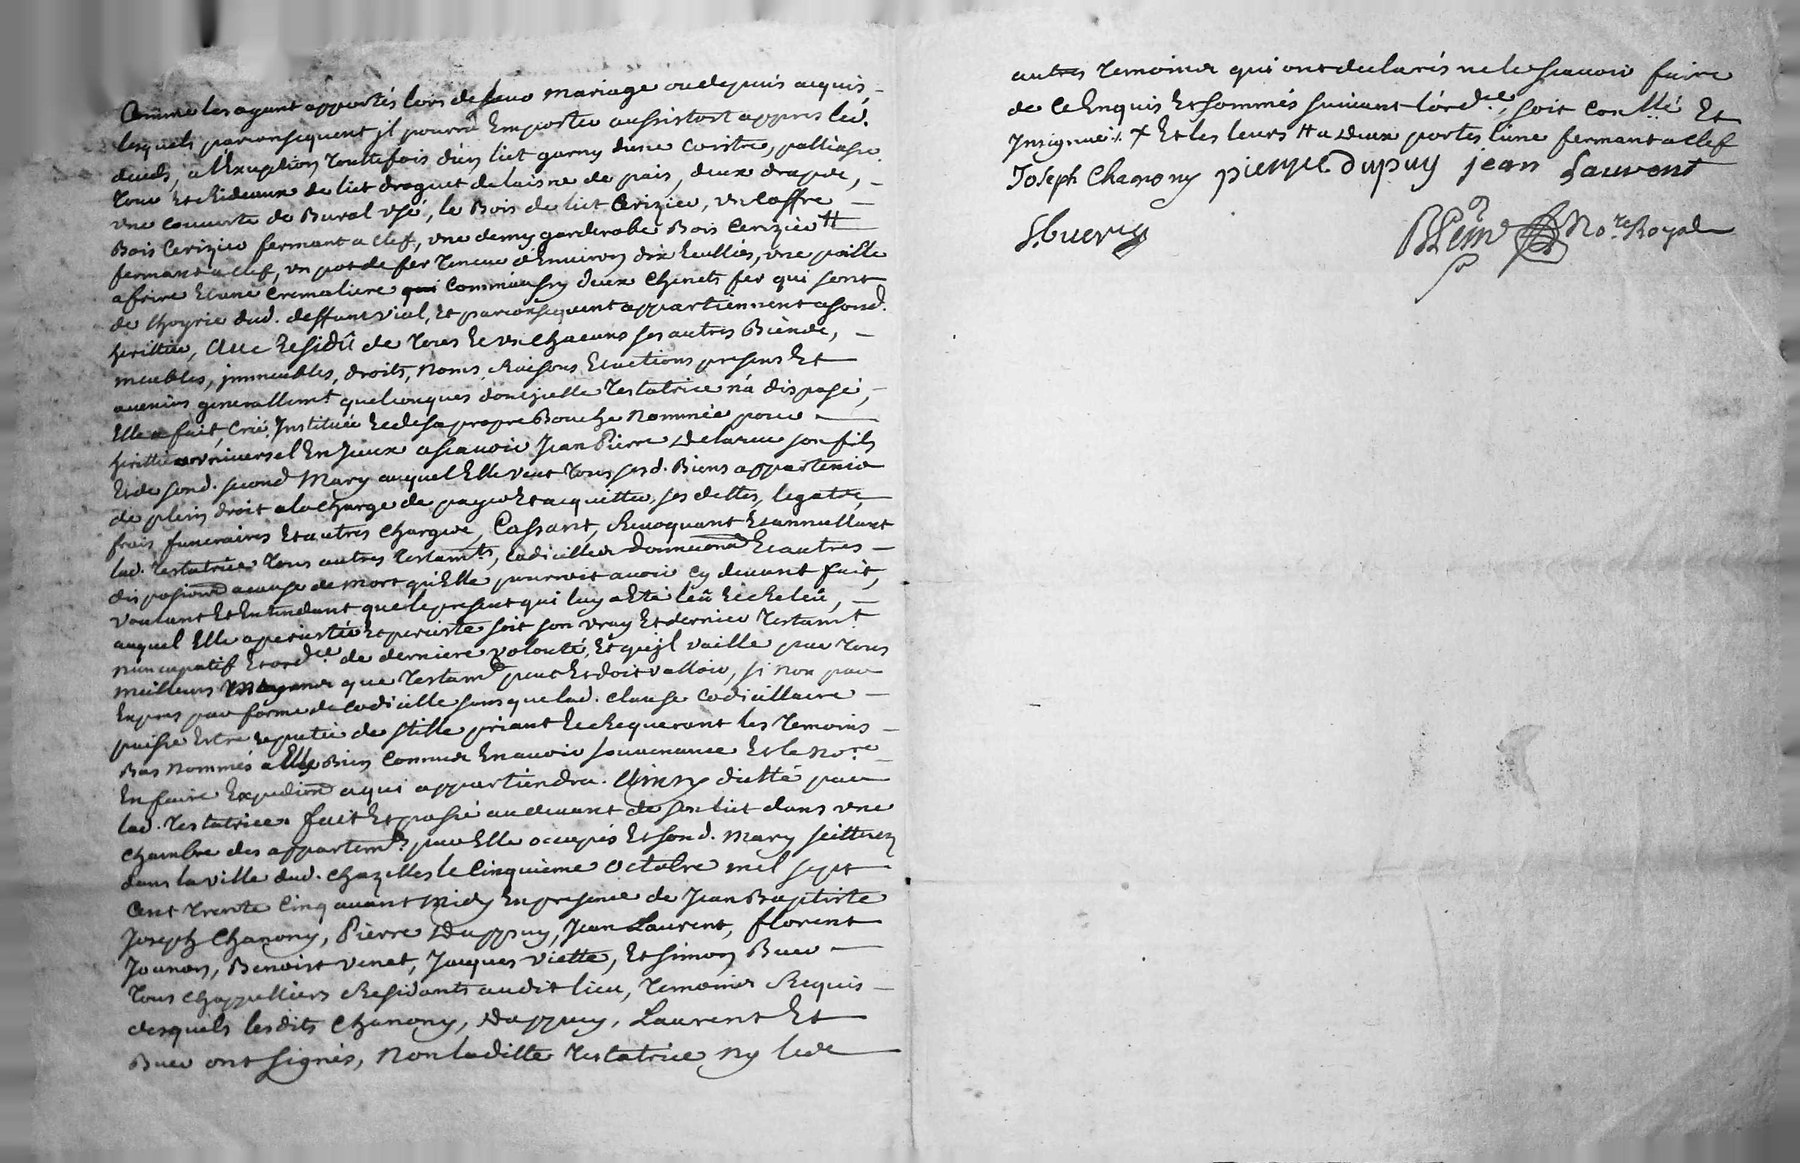 Comme les ayant apportés lors de leur mariage ou depuis acquis
lesquels parconsequent jl pourra Emporter aussistost appres led.
deceds, a l'Exception touttefois d'un lict garny d'une coistre, palliasse
tour Et Rideaux de lict droguet de laisne de païs, deux draps,
une couverte de Bural usé, le Bois de lict Cerizier, un coffre
Bois Cerizier fermant a clef, une demy garderobe Bois Cerizier #
fermant a clef, un pot de fer teneur d'Environ dix Ecullies, une poille
a frire Et une Cremaliere comm'aussy deux chenets fer qui sont
de l'hoyrie dud. deffunt Vial, Et parconsequent appartiennent a sond.
herittier, Au Residû de tous Et un chacuns ses autres Biens,
meubles, jmmeubles, droits, noms, Raisons Et actions presens Et
avenirs generallemt. quelconques dont jcelle Testatrice n'a disposé,
Elle a fait, Créé, Jnstitué Et de sa propre Bouche nommée pour
herittier universel En jceux asçavoir Jean Pierre Delarue son fils
Et de sond. second Mary auquel Elle veut tous sesd. Biens appartenir
de plein droit a la charge de payer Et acquitter ses dettes, legats,
frais funeraires Et autres charges, Cassant, Revoquant Et annullant
lad. Testatrice tous autres Testamts., codicilles donnaons Et autres
disposions acause de mort qu'Elle pourroit avoir cy devant fait,
voulant Et Entendant que le present qui luy a Eté leü Et Releü,
auquel Elle a percistée Et perciste soit son vray Et dernier Testamt.
nuncupatif Et ordce. de derniere volonté, Et qu'jl vaille par tous
meilleurs moyens que Testamt. peut Et doit valloir, si non par
Expres par forme de Codicille sans que lad. clause codicillaire
puisse Estre reputée de stille priant Et Requerant les Temoins
Bas nommés a Elle Bien connus En avoir souvenance Et le nore.
En faire Expedion a qui appartiendra. Ainsy dicté par
lad. Testatrice. fait Et passé audevant de son lict dans une
chambre des appartemts. par Elle occupés Et sond. Mary scittués
dans la ville dud. Chazelles le Cinquième Octobre mil sept
Cent Trente Cinq avant midy En presence de Jean Baptiste
Joseph Chanony, Pierre Duppuy, Jean Laurent, florent
Jounon, Benoist Venet, Jacques Viette, Et Simon Buer
tous chappelliers Residants audit lieu, Temoins Requis
desquels lesdits Chanony, Duppuy, Laurent Et
Buer ont signés, non laditte Testatrice ny les
autres Temoins qui ont declarés ne le sçavoir faire
de ce Enquis Et sommés suivant l'ordce., soit conllé Et
Jnsignué ⁒ X Et les leurs # a deux portes l'une fermant a clef
Joseph Chanony pierre dupuy jean Laurent
S. buer
Nore. Royal